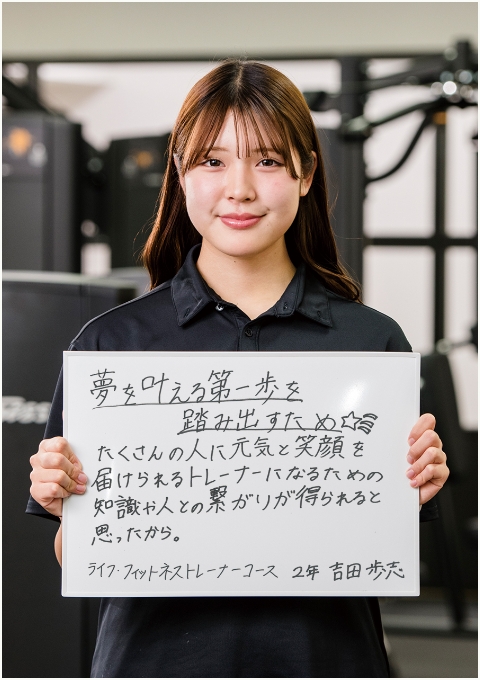 夢を叶える第一歩を
踏み出すため☆彡
たくさんの人に元気と笑顔を
届けられるトレーナーになるための
知識や人との繋がりが得られると
思ったから。
ライフ・フィットネストレーナーコース 2年 吉田 歩志